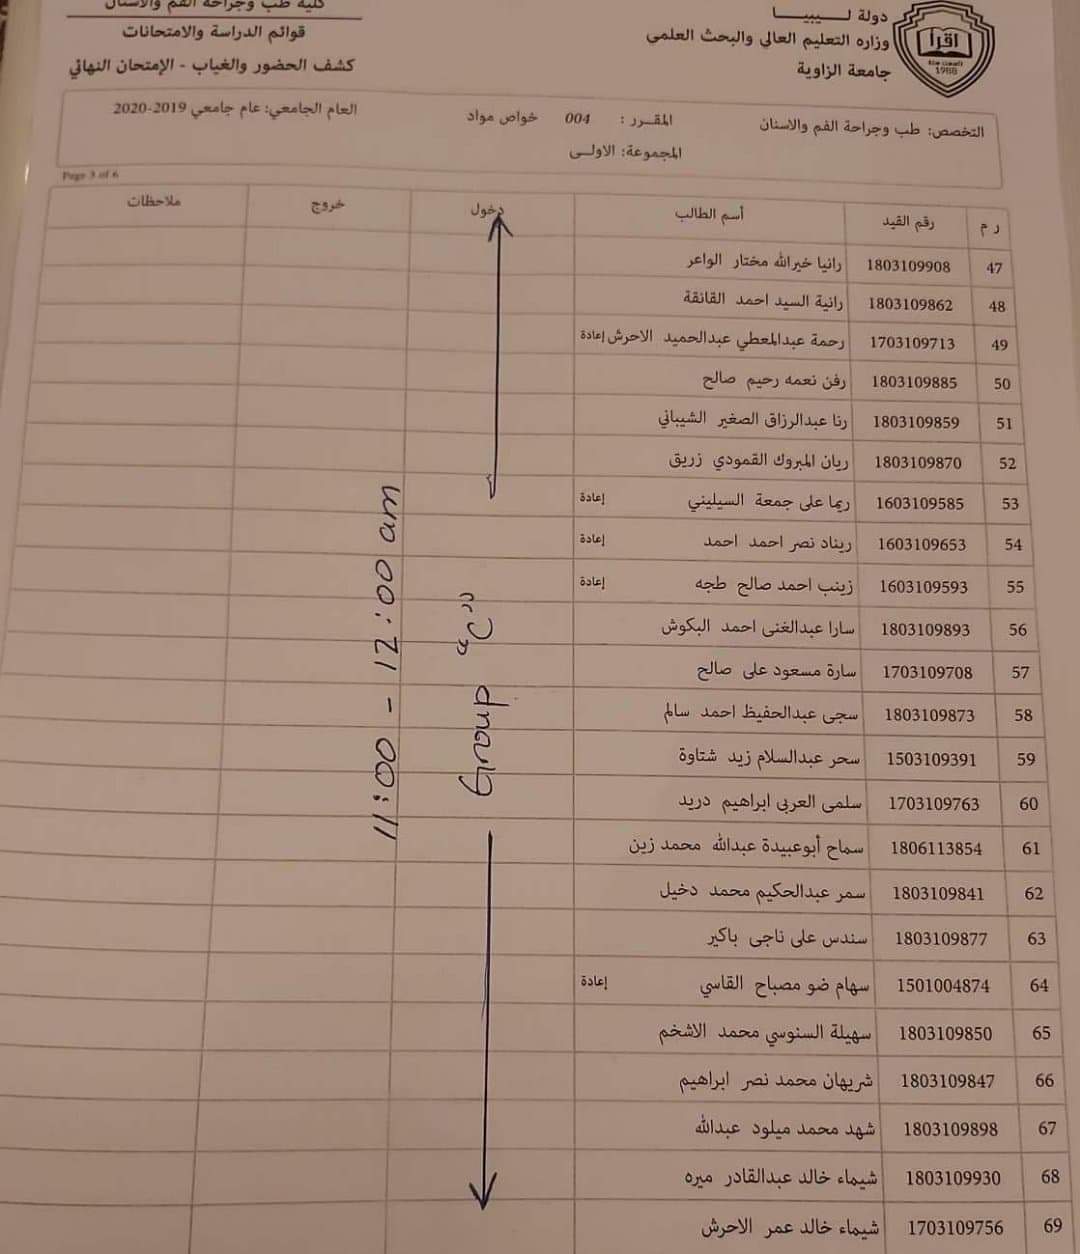 دولة لـــــيبيـــــا
وزاره التعليم العالي والبحث العلمى
جامعة الزاوية
اقرأ
1988
كلية طب وجراحة الفم والاسنان
قوائم الدراسة والامتحانات
كشف الحضور والغياب - الإمتحان النهائي
التخصص: طب وجراحة الفم والاسنان
المقـــرر : 004 خواص مواد
العام الجامعي: عام جامعي 2019-2020
المجموعة: الاولــى
Page 3 of 6
ر م رقم القيد أسم الطالب دخول خروج ملاحظات
47 1803109908 رانيا خيرالله مختار الواعر
48 1803109862 رانية السيد احمد القانقة
49 1703109713 رحمة عبدالمعطي عبدالحميد الاحرش إعادة
50 1803109885 رفن نعمه رحيم صالح
51 1803109859 رنا عبدالرزاق الصغير الشيباني
52 1803109870 ريان المبروك القمودي زريق
53 1603109585 ريما على جمعة السيليني إعادة
54 1603109653 ريناد نصر احمد احمد إعادة
55 1603109593 زينب احمد صالح طجه إعادة
56 1803109893 سارا عبدالغنى احمد البكوش
57 1703109708 سارة مسعود على صالح
58 1803109873 سجى عبدالحفيظ احمد سالم
59 1503109391 سحر عبدالسلام زيد شتاوة
60 1703109763 سلمى العربى ابراهيم دريد
61 1806113854 سماح أبوعبيدة عبدالله محمد زين
62 1803109841 سمر عبدالحكيم محمد دخيل
63 1803109877 سندس على ناجى باكير
64 1501004874 سهام ضو مصباح القاسي إعادة
65 1803109850 سهيلة السنوسي محمد الاشخم
66 1803109847 شريهان محمد نصر ابراهيم
67 1803109898 شهد محمد ميلود عبدالله
68 1803109930 شيماء خالد عبدالقادر ميره
69 1703109756 شيماء خالد عمر الاحرش
Group "C"
11:00 - 12:00 am